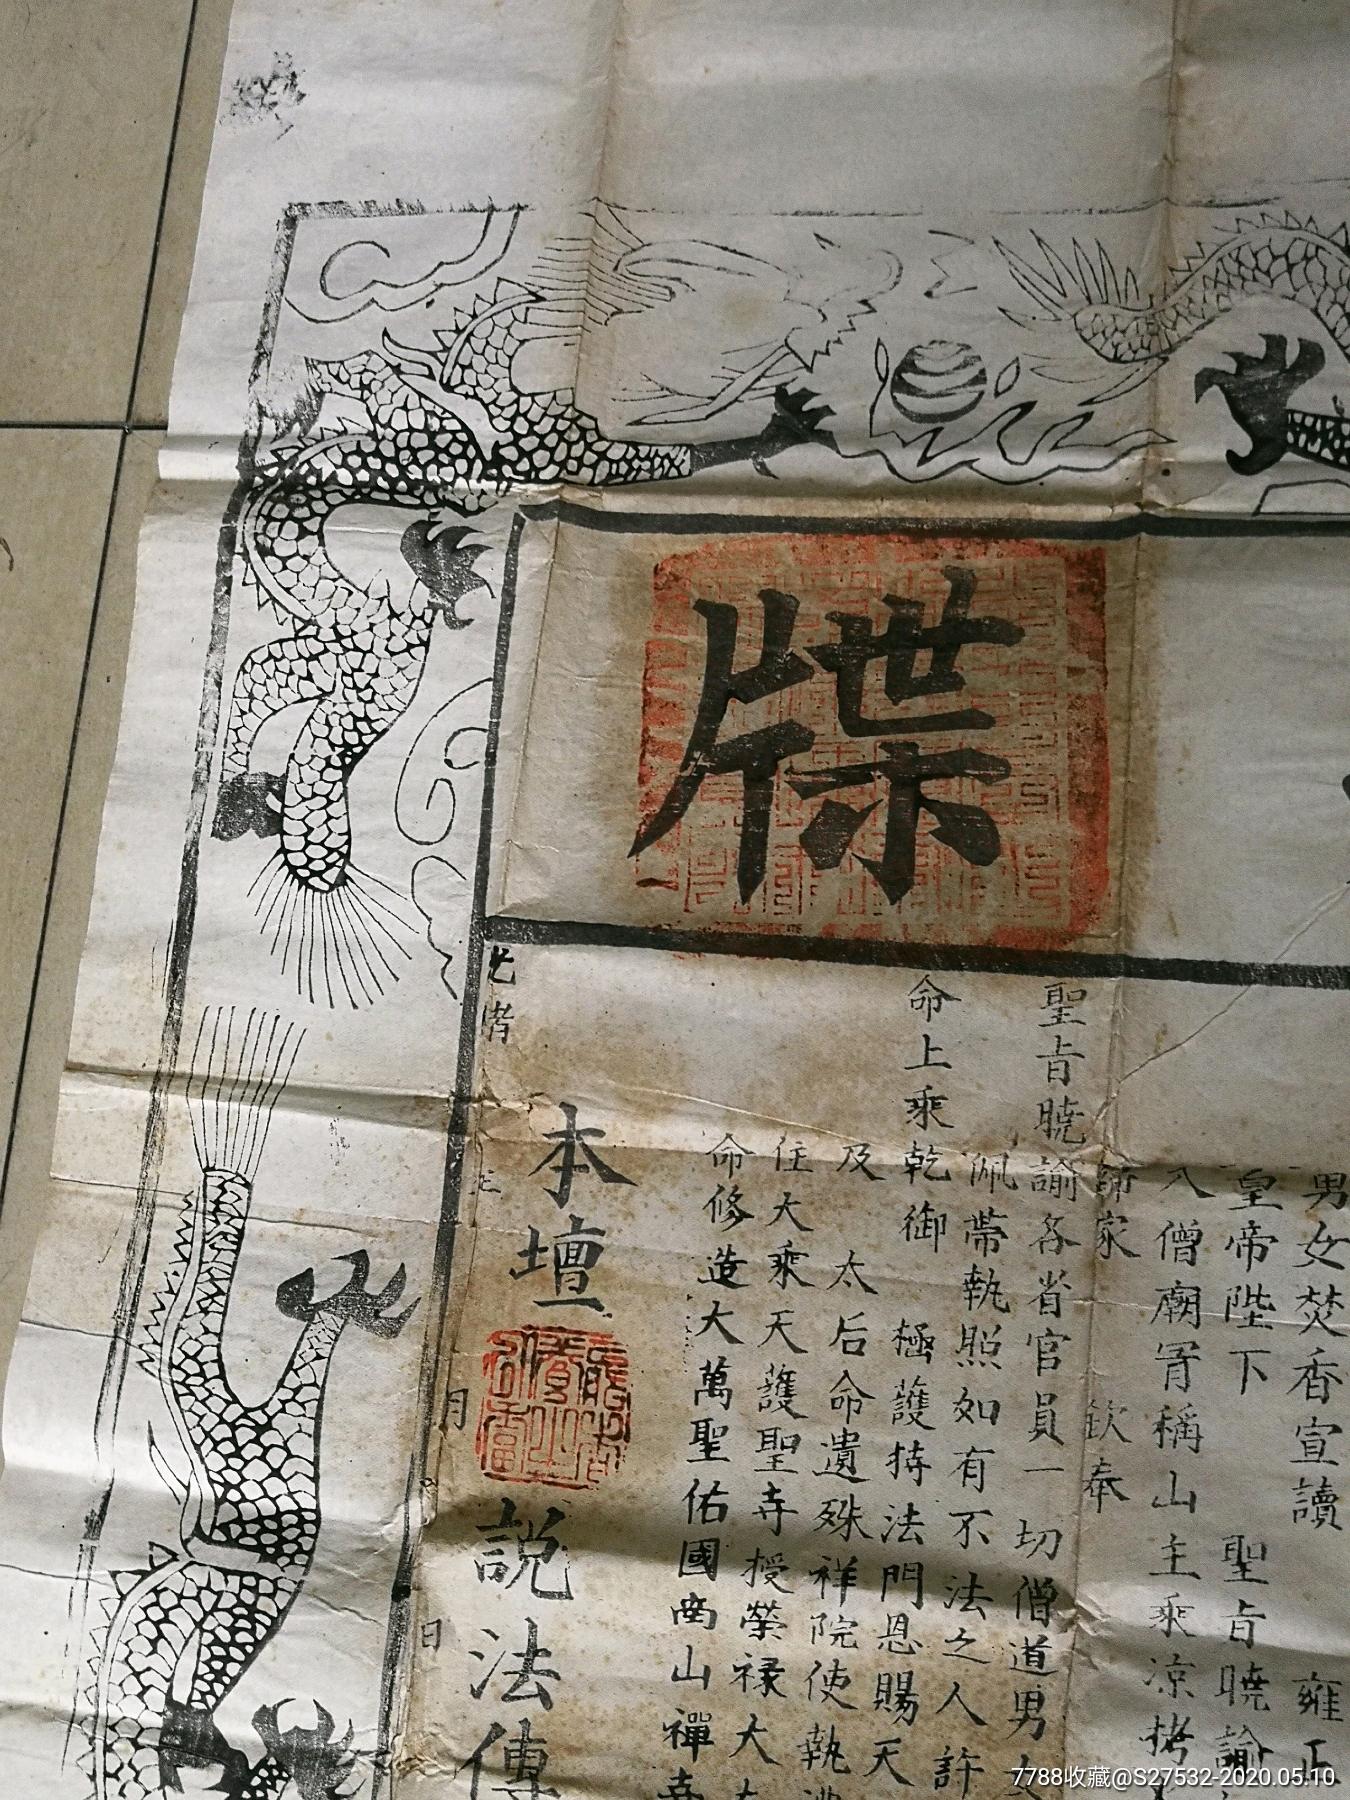 牒
男女焚香宣讀　雍正
皇帝陛下　聖旨曉諭
入僧廟胥稱山主乘凉拷
師家　欽奉
聖旨曉諭各省官員一切僧道男女
佩帶執照如有不法之人許
命上乘乾御　極護持法門恩賜天
及　太后命遺殊祥院使執
住大乘天護聖寺授榮祿大
命修造大萬聖佑國南山禪寺
本壇　說法傳
月　日
7788收藏@S27532-2020.05.10